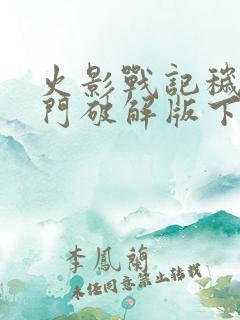 火影戰記穢
門破解版下
李鳳蘭
未任同意禁止转载